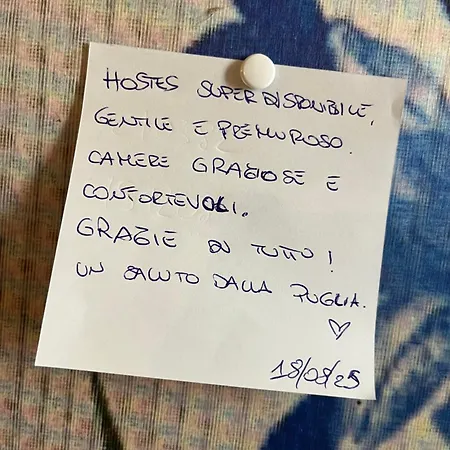 HOSTES SUPER DISPONIBILE,
GENTILE E PREMUROSO.
CAMERE GRAZIOSE E
CONFORTEVOLI.
GRAZIE DI TUTTO!
UN SALUTO DALLA PUGLIA.
♡
18/08/25